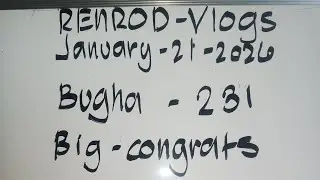 RENROD-Vlogs
January-21-2026
Bugha - 231
Big-congrats